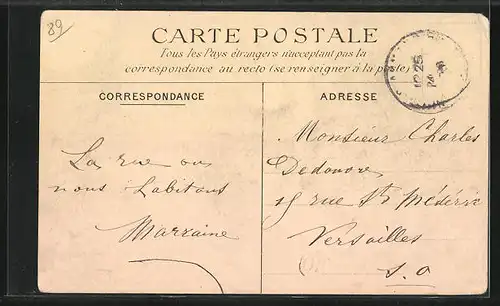 89
CARTE POSTALE
Tous les Pays étrangers n'acceptant pas la
correspondance au recto (se renseigner à la poste)
CORRESPONDANCE
ADRESSE
La rue ou
nous habitons
Marraine
Monsieur Charles
15 rue St Médéric
Versailles
S. O